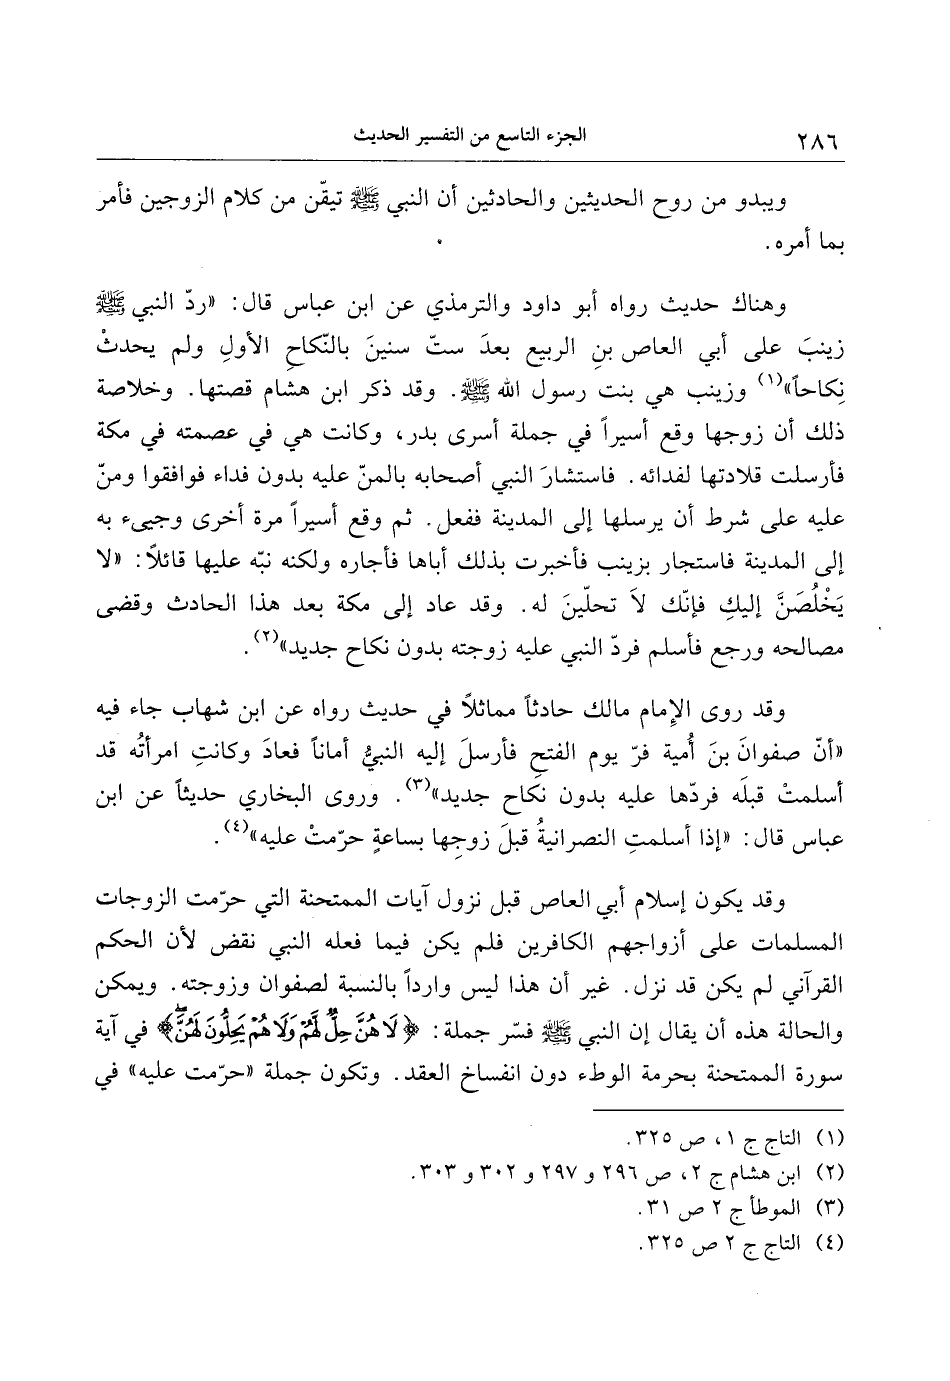 ٢٨٦ الجزء التاسع من التفسير الحديث
ويبدو من روح الحديثين والحادثين أن النبي ﷺ تيقّن من كلام الزوجين فأمر
بما أمره.
وهناك حديث رواه أبو داود والترمذي عن ابن عباس قال: «ردّ النبي ﷺ
زينبَ على أبي العاص بنِ الربيع بعدَ ستّ سنينَ بالنّكاحِ الأولِ ولم يحدثْ
نِكاحاً»(١) وزينب هي بنت رسول الله ﷺ. وقد ذكر ابن هشام قصتها. وخلاصة
ذلك أن زوجها وقع أسيراً في جملة أسرى بدر، وكانت هي في عصمته في مكة
فأرسلت قلادتها لفدائه. فاستشارَ النبي أصحابه بالمنّ عليه بدون فداء فوافقوا ومنّ
عليه على شرط أن يرسلها إلى المدينة ففعل. ثم وقع أسيراً مرة أخرى وجيىء به
إلى المدينة فاستجار بزينب فأخبرت بذلك أباها فأجاره ولكنه نبّه عليها قائلاً: «لا
يَخْلُصَنَّ إليكِ فإنّك لاَ تحلّينَ له. وقد عاد إلى مكة بعد هذا الحادث وقضى
مصالحه ورجع فأسلم فردّ النبي عليه زوجته بدون نكاح جديد»(٢).
وقد روى الإمام مالك حادثاً مماثلاً في حديث رواه عن ابن شهاب جاء فيه
«أنّ صفوانَ بنَ أُمية فرّ يوم الفتحِ فأرسلَ إليه النبيُّ أماناً فعادَ وكانتِ امرأتُه قد
أسلمتْ قبلَه فردّها عليه بدون نكاح جديد»(٣). وروى البخاري حديثاً عن ابن
عباس قال: «إذا أسلمتِ النصرانيةُ قبلَ زوجِها بساعةٍ حرّمتْ عليه»(٤).
وقد يكون إسلام أبي العاص قبل نزول آيات الممتحنة التي حرّمت الزوجات
المسلمات على أزواجهم الكافرين فلم يكن فيما فعله النبي نقض لأن الحكم
القرآني لم يكن قد نزل. غير أن هذا ليس وارداً بالنسبة لصفوان وزوجته. ويمكن
والحالة هذه أن يقال إن النبي ﷺ فسّر جملة: ﴿لَا هُنَّ حِلٌّ لَّهُمْ وَلَا هُمْ يَحِلُّونَ لَهُنَّۖ﴾ في آية
سورة الممتحنة بحرمة الوطء دون انفساخ العقد. وتكون جملة «حرّمت عليه» في
(١) التاج ج ١، ص ٣٢٥.
(٢) ابن هشام ج ٢، ص ٢٩٦ و ٢٩٧ و ٣٠٢ و ٣٠٣.
(٣) الموطأ ج ٢ ص ٣١.
(٤) التاج ج ٢ ص ٣٢٥.